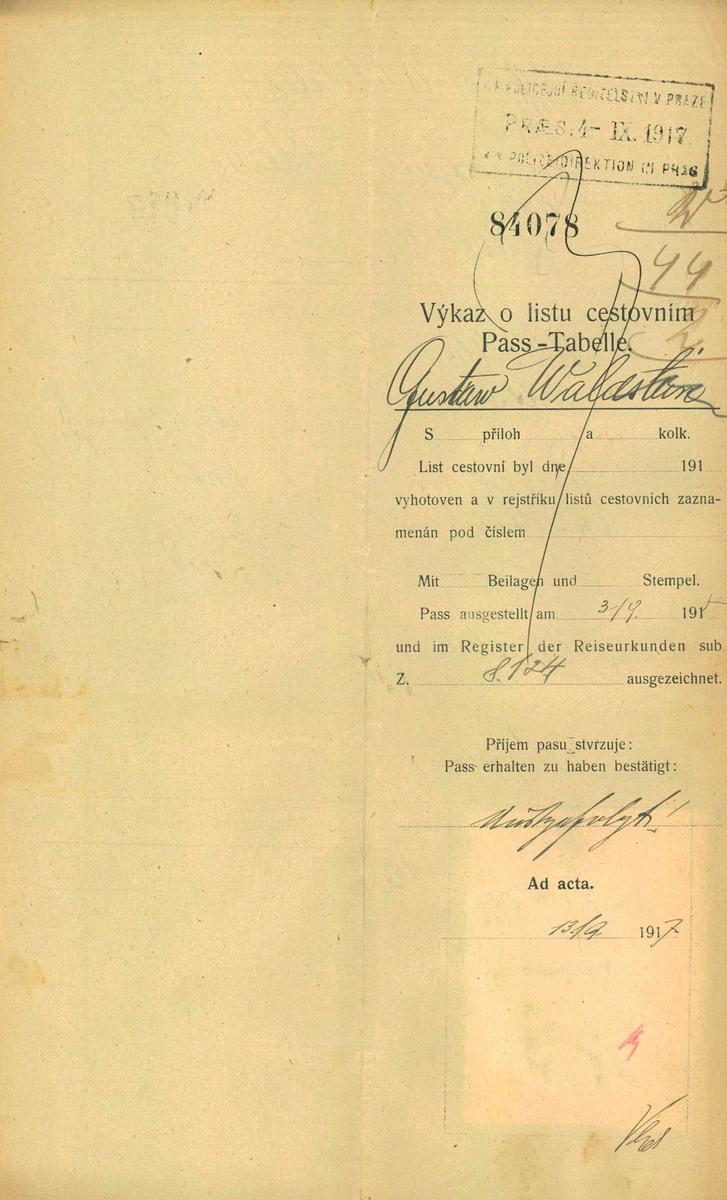 K.K. POLICEJNÍ ŘEDITELSTVÍ V PRAZE
PRÆS. 4- IX. 1917
K.K. POLICEIDIREKTION IN PRAG
84078
44
Výkaz o listu cestovním
Pass-Tabelle.
Gustav Waldstein
S příloh a kolk.
List cestovní byl dne 191
vyhotoven a v rejstříku listů cestovnich zazna-
menán pod číslem
Mit Beilagen und Stempel.
Pass ausgestellt am 3/9. 191
und im Register der Reiseurkunden sub
Z. 8.124 ausgezeichnet.
Příjem pasu stvrzuje:
Pass erhalten zu haben bestätigt:
Ad acta.
13/9 1917